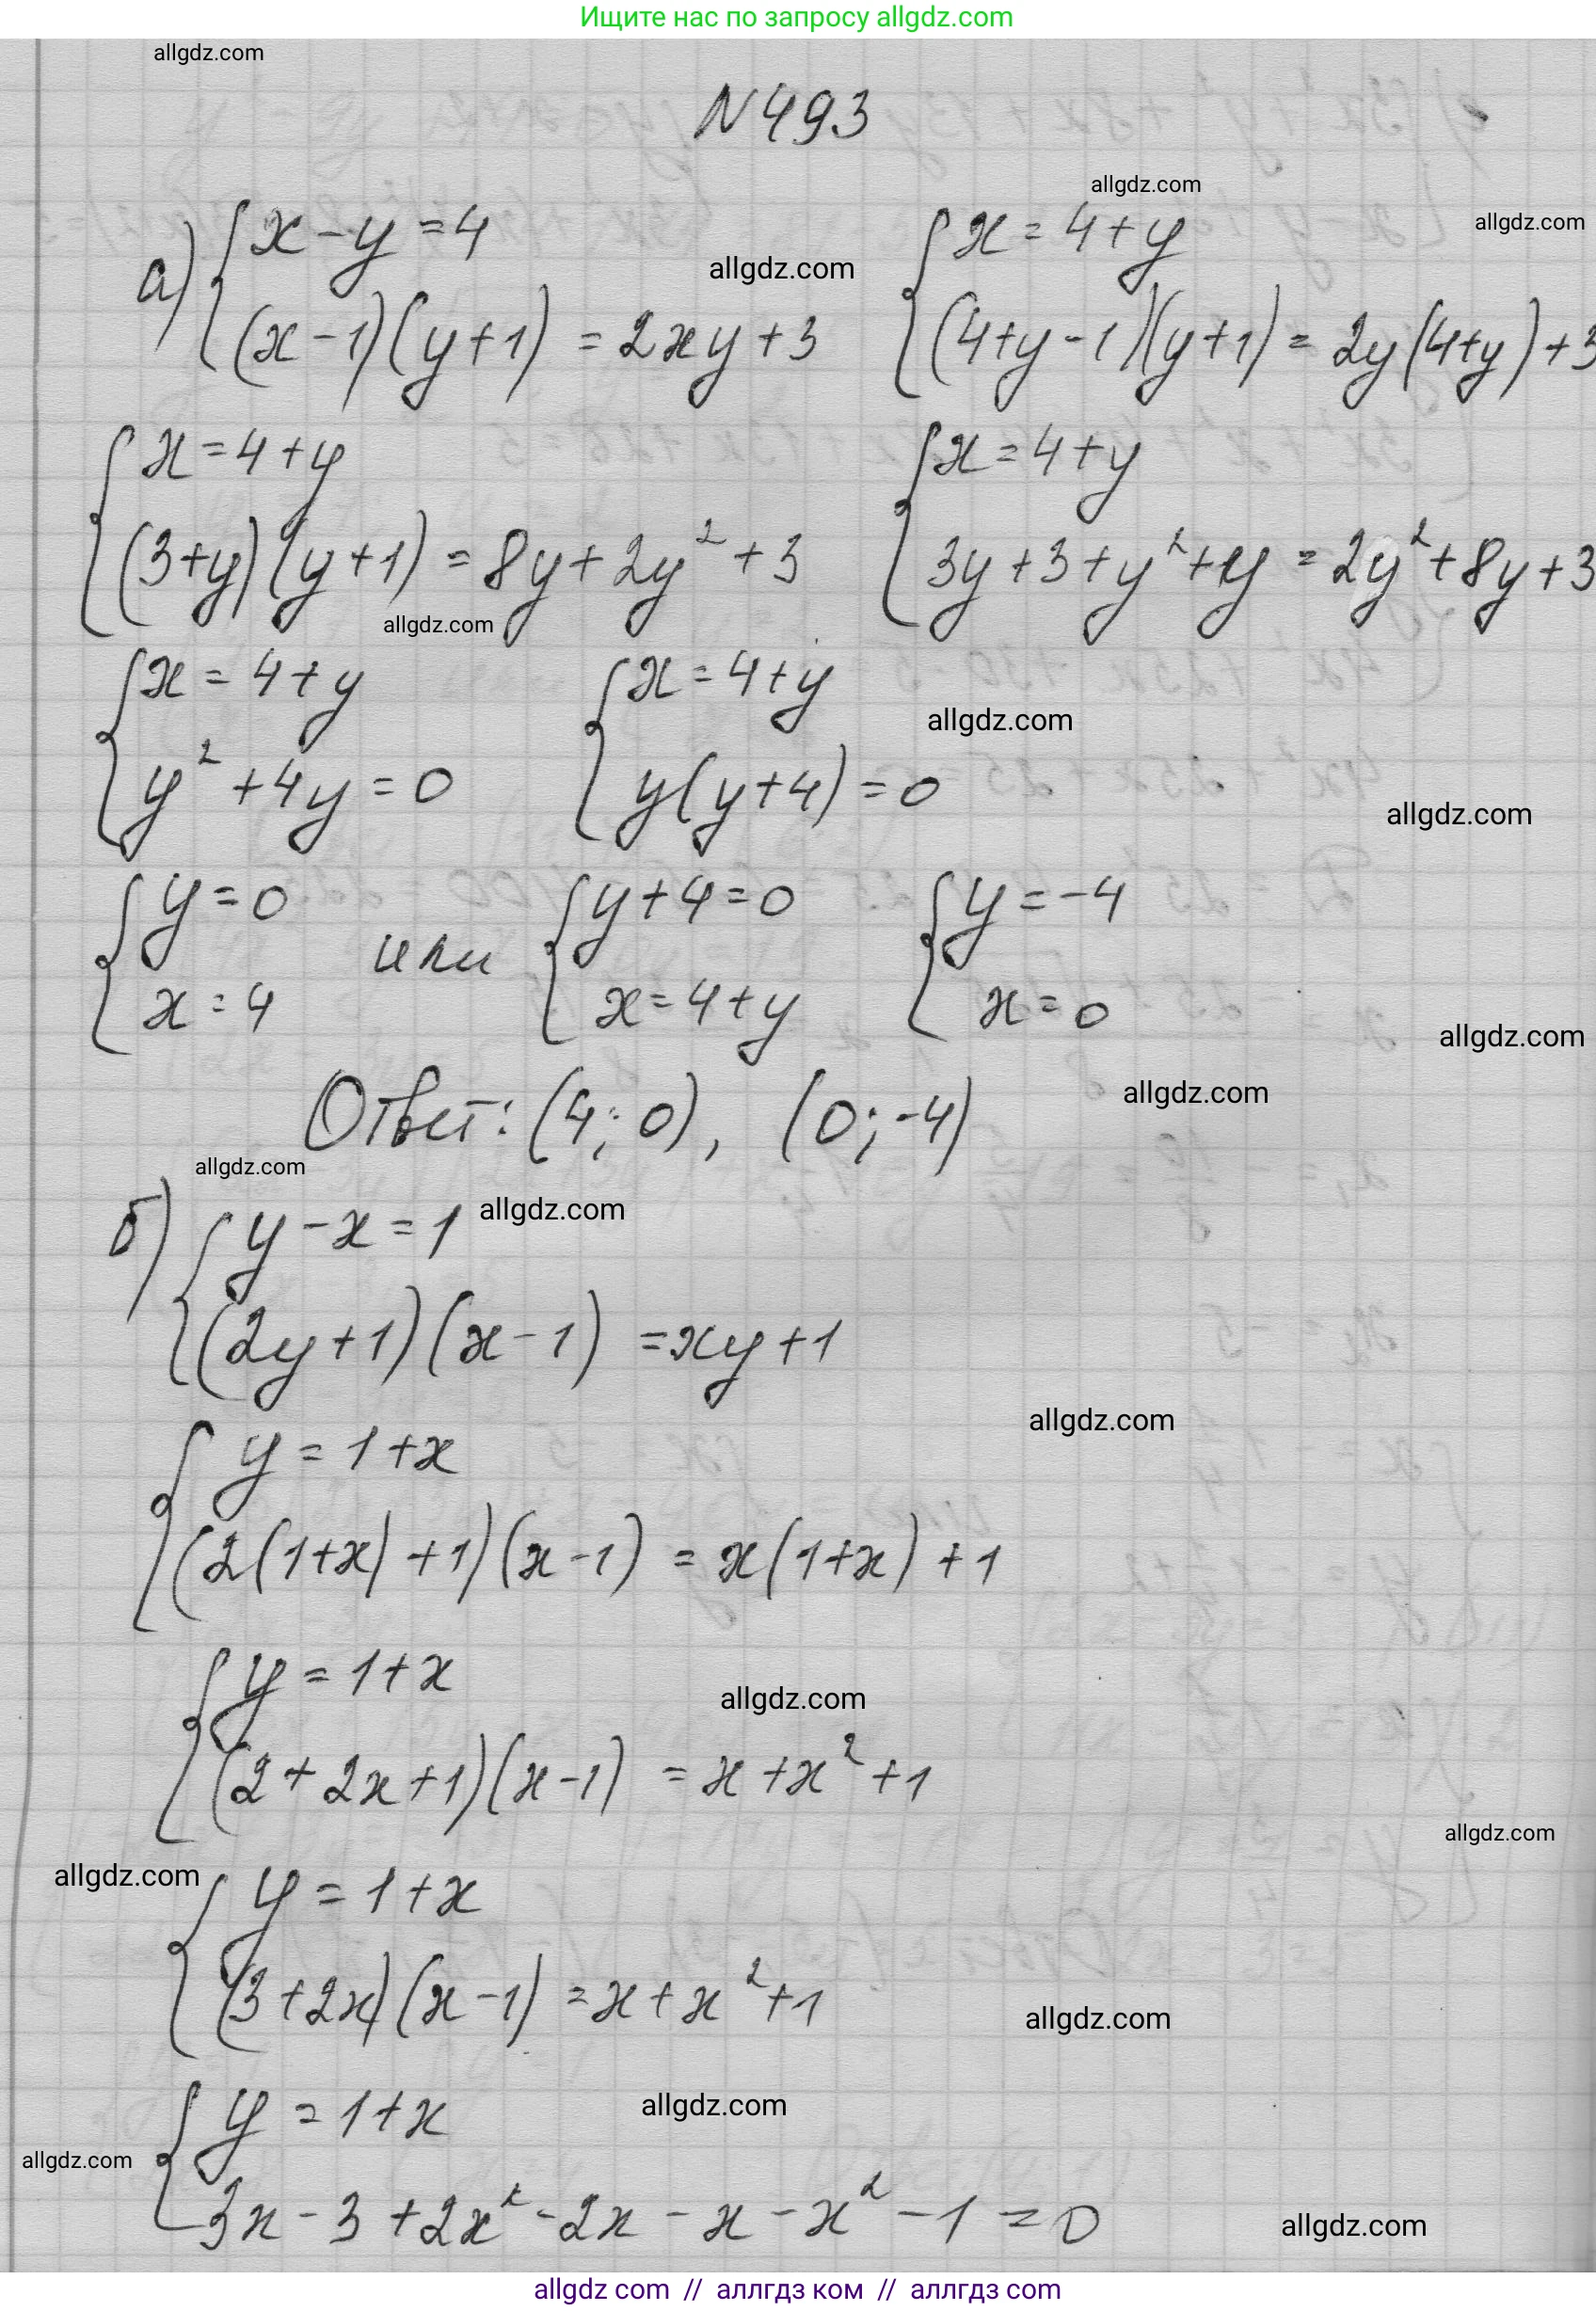 Ищите нас по запросу allgdz.com
allgdz.com
N493
allgdz.com
allgdz.com
а) { x - y = 4
(x - 1)(y + 1) = 2xy + 3
allgdz.com
{ x = 4 + y
(4 + y - 1)(y + 1) = 2y(4 + y) + 3
{ x = 4 + y
(3 + y)(y + 1) = 8y + 2y² + 3
{ x = 4 + y
3y + 3 + y² + y = 2y² + 8y + 3
allgdz.com
{ x = 4 + y
y² + 4y = 0
{ x = 4 + y
y(y + 4) = 0
allgdz.com
allgdz.com
{ y = 0
x = 4
или
{ y + 4 = 0
x = 4 + y
{ y = -4
x = 0
allgdz.com
allgdz.com
Ответ: (4; 0), (0; -4)
allgdz.com
б) { y - x = 1
(2y + 1)(x - 1) = xy + 1
allgdz.com
allgdz.com
{ y = 1 + x
(2(1 + x) + 1)(x - 1) = x(1 + x) + 1
{ y = 1 + x
(2 + 2x + 1)(x - 1) = x + x² + 1
allgdz.com
allgdz.com
allgdz.com
{ y = 1 + x
(3 + 2x)(x - 1) = x + x² + 1
allgdz.com
{ y = 1 + x
3x - 3 + 2x² - 2x - x - x² - 1 = 0
allgdz.com
allgdz.com
allgdz.com
allgdz com // аллгдз ком // аллгдз com